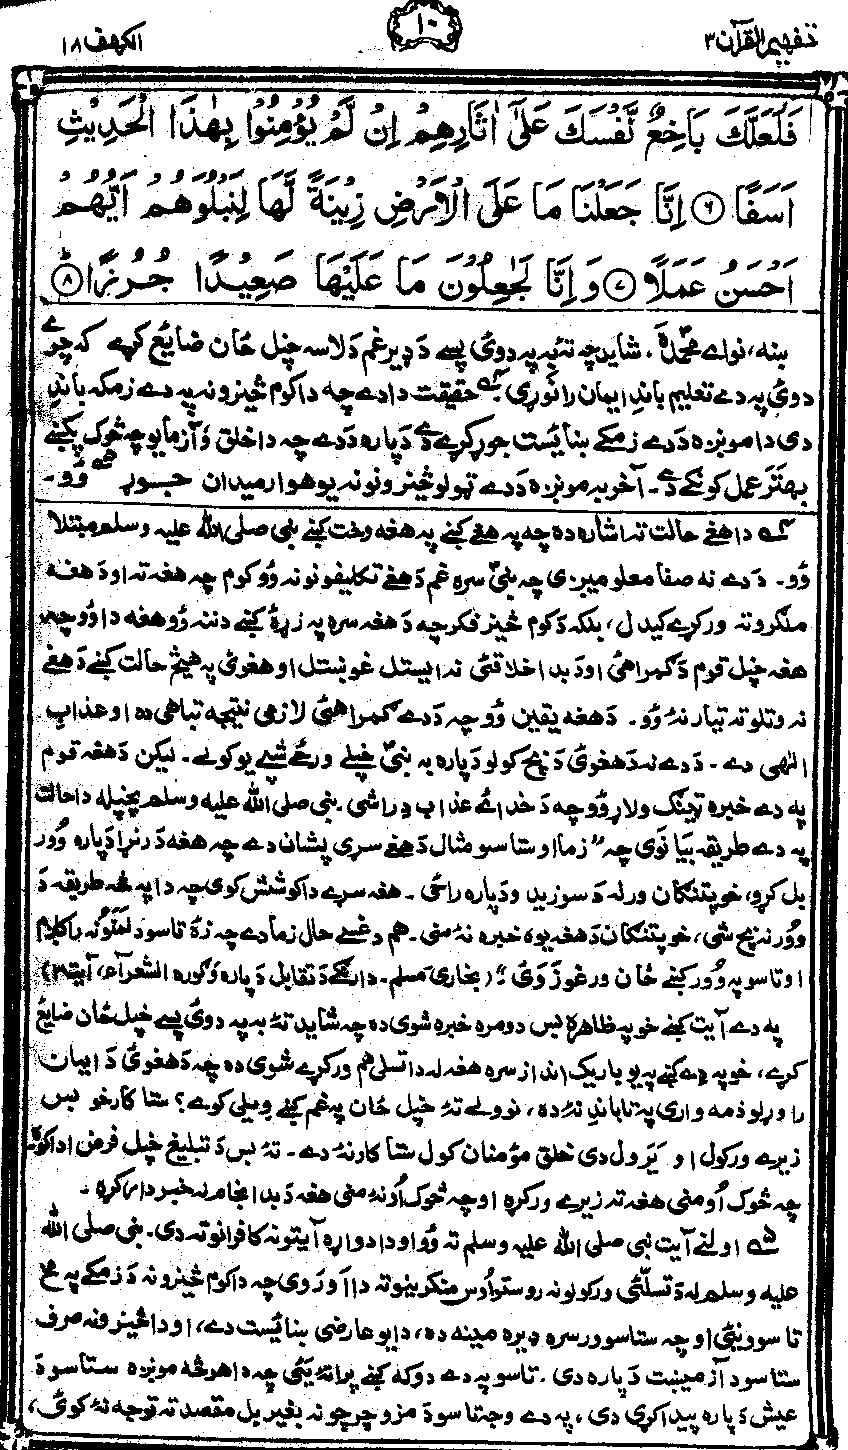 تفهیم القرآن ۳
۱۰
الکهف ۱۸
فَلَعَلَّكَ بَاخِعٌ نَّفْسَكَ عَلٰٓى اٰثَارِهِمْ اِنْ لَّمْ يُؤْمِنُوْا بِهٰذَا الْحَدِيْثِ
اَسَفًا ۶ اِنَّا جَعَلْنَا مَا عَلَى الْاَرْضِ زِيْنَةً لَّهَا لِنَبْلُوَهُمْ اَيُّهُمْ
اَحْسَنُ عَمَلًا ۷ وَاِنَّا لَجٰعِلُوْنَ مَا عَلَيْهَا صَعِيْدًا جُرُزًا ۸
ښه، نو اے محمدؐ، شاید چه تهٔ به په دوئ پسے د ډیر غم د لاسه خپل ځان ضایع کړے که چرے
دوئ په دے تعلیم باندِ ایمان رانوړی حقیقت دا دے چه دا کوم څیزونه په دے زمکه باندِ
دی دا مونږه د دے زمکے ښائست جوړ کړے دے د پاره د دے چه دا خلق وآزمایو چه څوک پکښے
بهتر عمل کونکے دے۔ آخر به مونږه د دے ټولو څیزونو نه یو هوار میدان جوړ وو۔
دا هغے حالت ته اشاره ده چه په هغے کښے په هغه وخت کښے نبی صلی الله علیه وسلم مبتلا
وو۔ د دے نه صفا معلومیږی چه نبیؐ سره غم د هغے تکلیفونو نه وو کوم چه هغه ته او د هغه
ملګرو ته ورکړے کیدل، بلکه د کوم څیز فکر چه د هغه سره په زړهٔ کښے دننه وو هغه دا وو چه
هغه خپل قوم د ګمراهئ او د بد اخلاقئ نه ایستل غوښتل او هغوئ په هیڅ حالت کښے د هغے
نه وتلو ته تیار نهٔ وو۔ د هغه یقین وو چه د دے ګمراهئ لازمی نتیجه تباهی ده او عذابِ
الٰهی دے۔ د دے نه د هغوئ د بچ کولو د پاره به نبیؐ خپلے ورځے شپے یو کولے۔ لیکن د هغه قوم
په دے خبره ټینګ ولاړ وو چه د خدائے عذاب دِ راشی۔ نبی صلی الله علیه وسلم پخپله دا حالت
په دے طریقه بیانوی چه "زما او ستاسو مثال د هغے سړی پشان دے چه هغه د رنړا د پاره وور
بل کړو، خو پتنګان ورله د سوزیدو د پاره راځی۔ هغه سړے دا کوشش کوی چه دا په څه طریقه د
وور نه بچ شی، خو پتنګان د هغه یوه خبره نهٔ منی۔ هم دغسے حال زما دے چه زهٔ تاسو د لمنو نه راکاږم
او تاسو په وور کښے ځان ورغوزوئ"۔ (بخاری، مسلم۔ د تقابل د پاره وګوره الشعرآء، آیت ۳)
په دے آیت کښے خو په ظاهره بس دومره خبره شوی ده چه شاید تهٔ به په دوئ پسے خپل ځان ضایع
کړے، خو په دے کښے په یو باریک انداز سره هغه له دا تسلی هم ورکړے شوی ده چه د هغوئ د ایمان
راوړلو ذمه واری په تا باندِ نهٔ ده، نو ولے تهٔ خپل ځان په غم کښے ویلی کوے؟ ستا کار خو بس
زیرے ورکول او یرول دی خلق مؤمنان کول ستا کار نهٔ دے۔ تهٔ بس د تبلیغ خپل فرض ادا کوه۔
چه څوک اومنی هغه ته زیرے ورکړه او چه څوک اونهٔ منی هغه د بد انجام نه خبردار کړه۔
اولنے آیت نبی صلی الله علیه وسلم ته وو او دا دواړه آیتونه کافرانو ته دی۔ نبی صلی الله
علیه وسلم له د تسلئ ورکولو نه روستو اوس منکرینو ته دا آوروی چه دا کوم څیزونه د زمکے په مخ
تاسو وینئ او چه ستاسو ورسره ډیره مینه ده، دا یو عارضی ښائست دے، او دا څیزونه صرف
ستاسو د آزمیښت د پاره دی۔ تاسو په دے دوکه کښے پراتهٔ یئ چه دا هر څه مونږه ستاسو د
عیش د پاره پیدا کړی دی، په دے وجه تاسو د مزو چړچو نه بغیر بل مقصد ته توجه نهٔ کوئ،